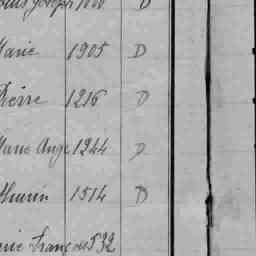 Joseph 1000 D
Marie 1905 D
Pierre 1216 D
Marie Ange 1244 D
Mathurin 1514 D
Marie Franç 532